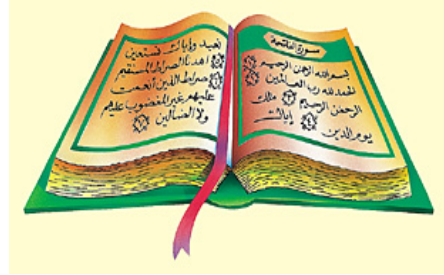 سورة الفاتحة
بسم الله الرحمن الرحيم
الحمد لله رب العالمين
الرحمن الرحيم ملك
يوم الدين إياك
نعبد وإياك نستعين
اهدنا الصراط المستقيم
صراط الذين انعمت
عليهم غير المغضوب عليهم
ولا الضالين